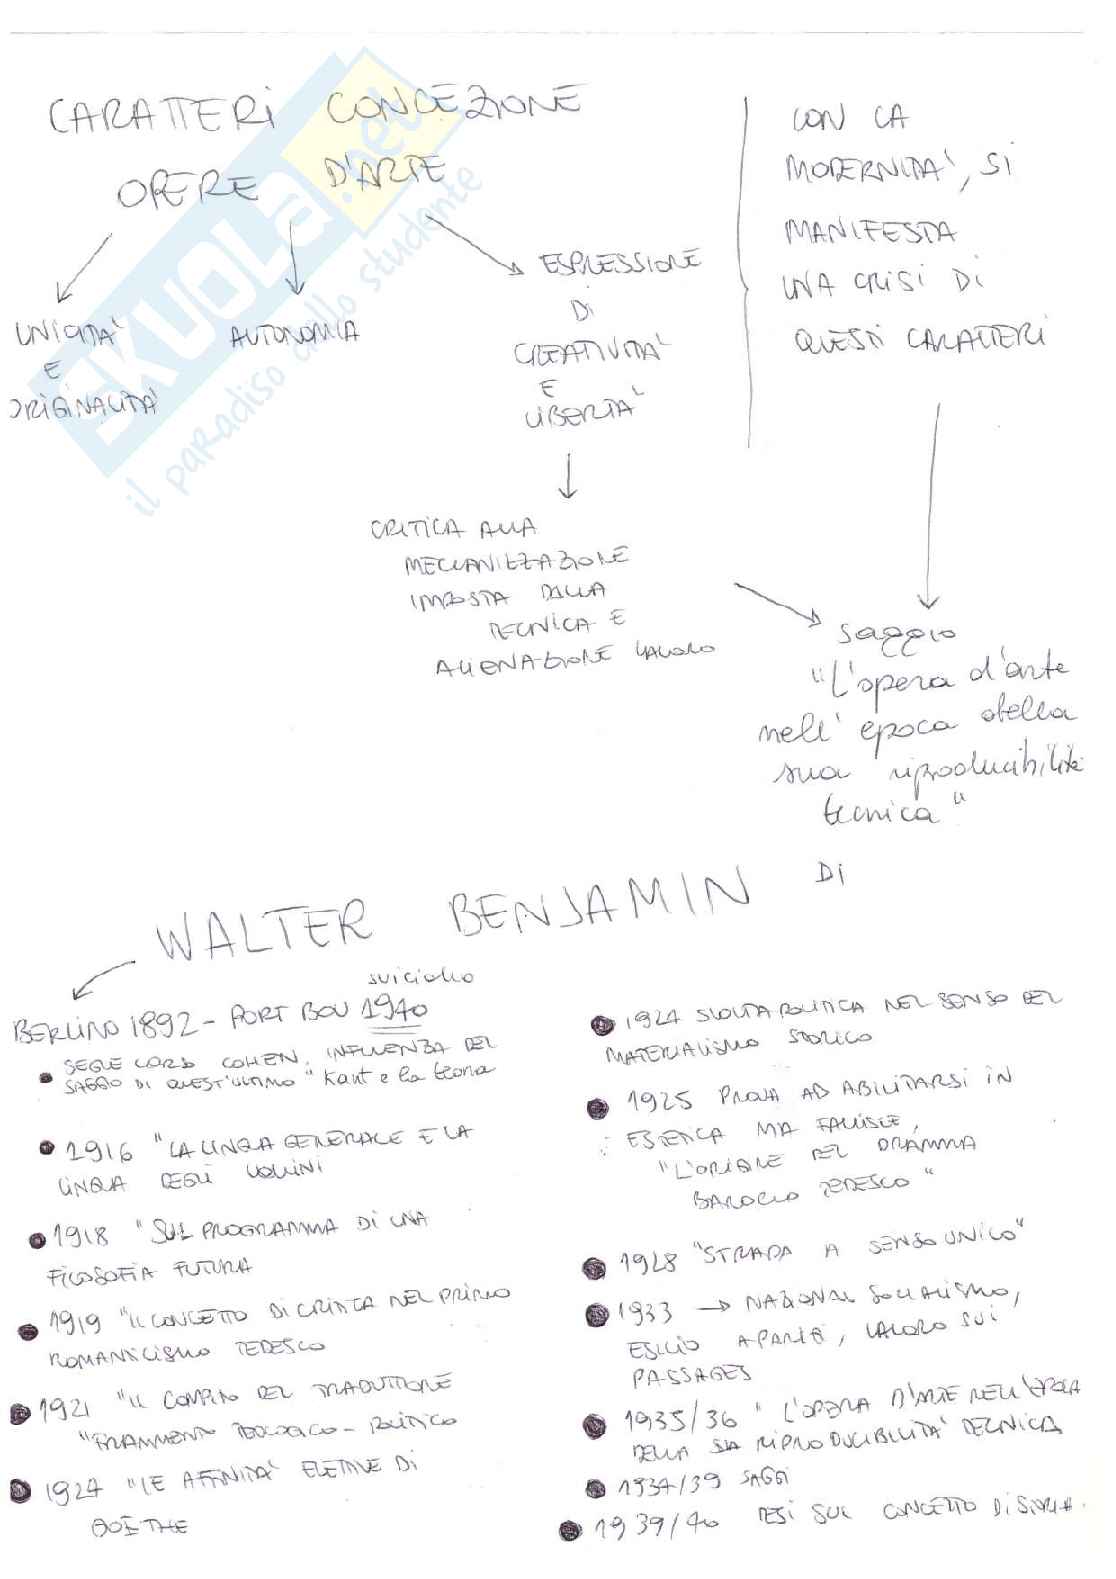 CARATTERI CONCEZIONE
OPERE D'ARTE
UNICITA'
E
ORIGINALITA'
AUTONOMIA
ESPRESSIONE
DI
CREATIVITA'
E
LIBERTA'
CRITICA ALLA
MECCANIZZAZIONE
IMPOSTA DALLA
TECNICA E
ALIENAZIONE LAVORO
CON LA
MODERNITA', SI
MANIFESTA
UNA CRISI DI
QUESTI CARATTERI
saggio
"L'opera d'arte
nell' epoca della
sua riproducibilità
tecnica"
DI
WALTER BENJAMIN
suicidio
BERLINO 1892 - PORT BOU 1940
SEGUE CORSO COHEN, INFLUENZA DEL
SAGGIO DI QUEST'ULTIMO "Kant e la teoria
1916 "LA LINGUA GENERALE E LA
LINGUA DEGLI UOMINI
1918 "SUL PROGRAMMA DI UNA
FILOSOFIA FUTURA
1919 "IL CONCETTO DI CRITICA NEL PRIMO
ROMANTICISMO TEDESCO
1921 "IL COMPITO DEL TRADUTTORE
"FRAMMENTO TEOLOGICO-POLITICO
1924 "LE AFFINITA' ELETTIVE DI
GOETHE
1924 SVOLTA POLITICA NEL SENSO DEL
MATERIALISMO STORICO
1925 PROVA AD ABILITARSI IN
ESTETICA MA FALLISCE,
"L'ORIGINE DEL DRAMMA
BAROCCO TEDESCO"
1928 "STRADA A SENSO UNICO"
1933 → NAZIONAL SOCIALISMO,
ESILIO A PARIGI, LAVORO SUI
PASSAGES
1935/36 "L'OPERA D'ARTE NELL'EPOCA
DELLA SUA RIPRODUCIBILITA' TECNICA
1934/39 SAGGI
1939/40 TESI SUL CONCETTO DI STORIA.
SKUOLA.net
il paradiso dello studente